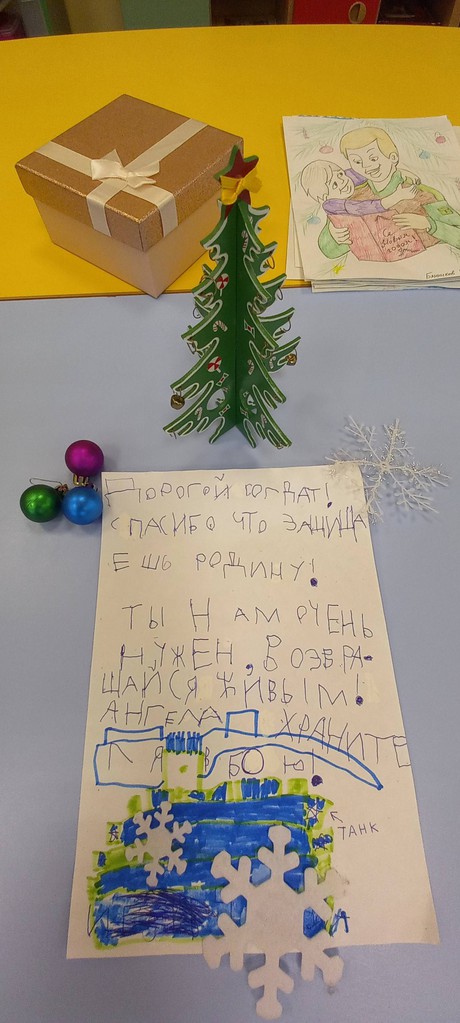 Со
Новым
годом
Дорогой солдат!
спасибо что защища
ешь родину!
ты нам очень
нужен, Возвра-
щайся живым!
Ангела хранитe
ля в бою!
танк